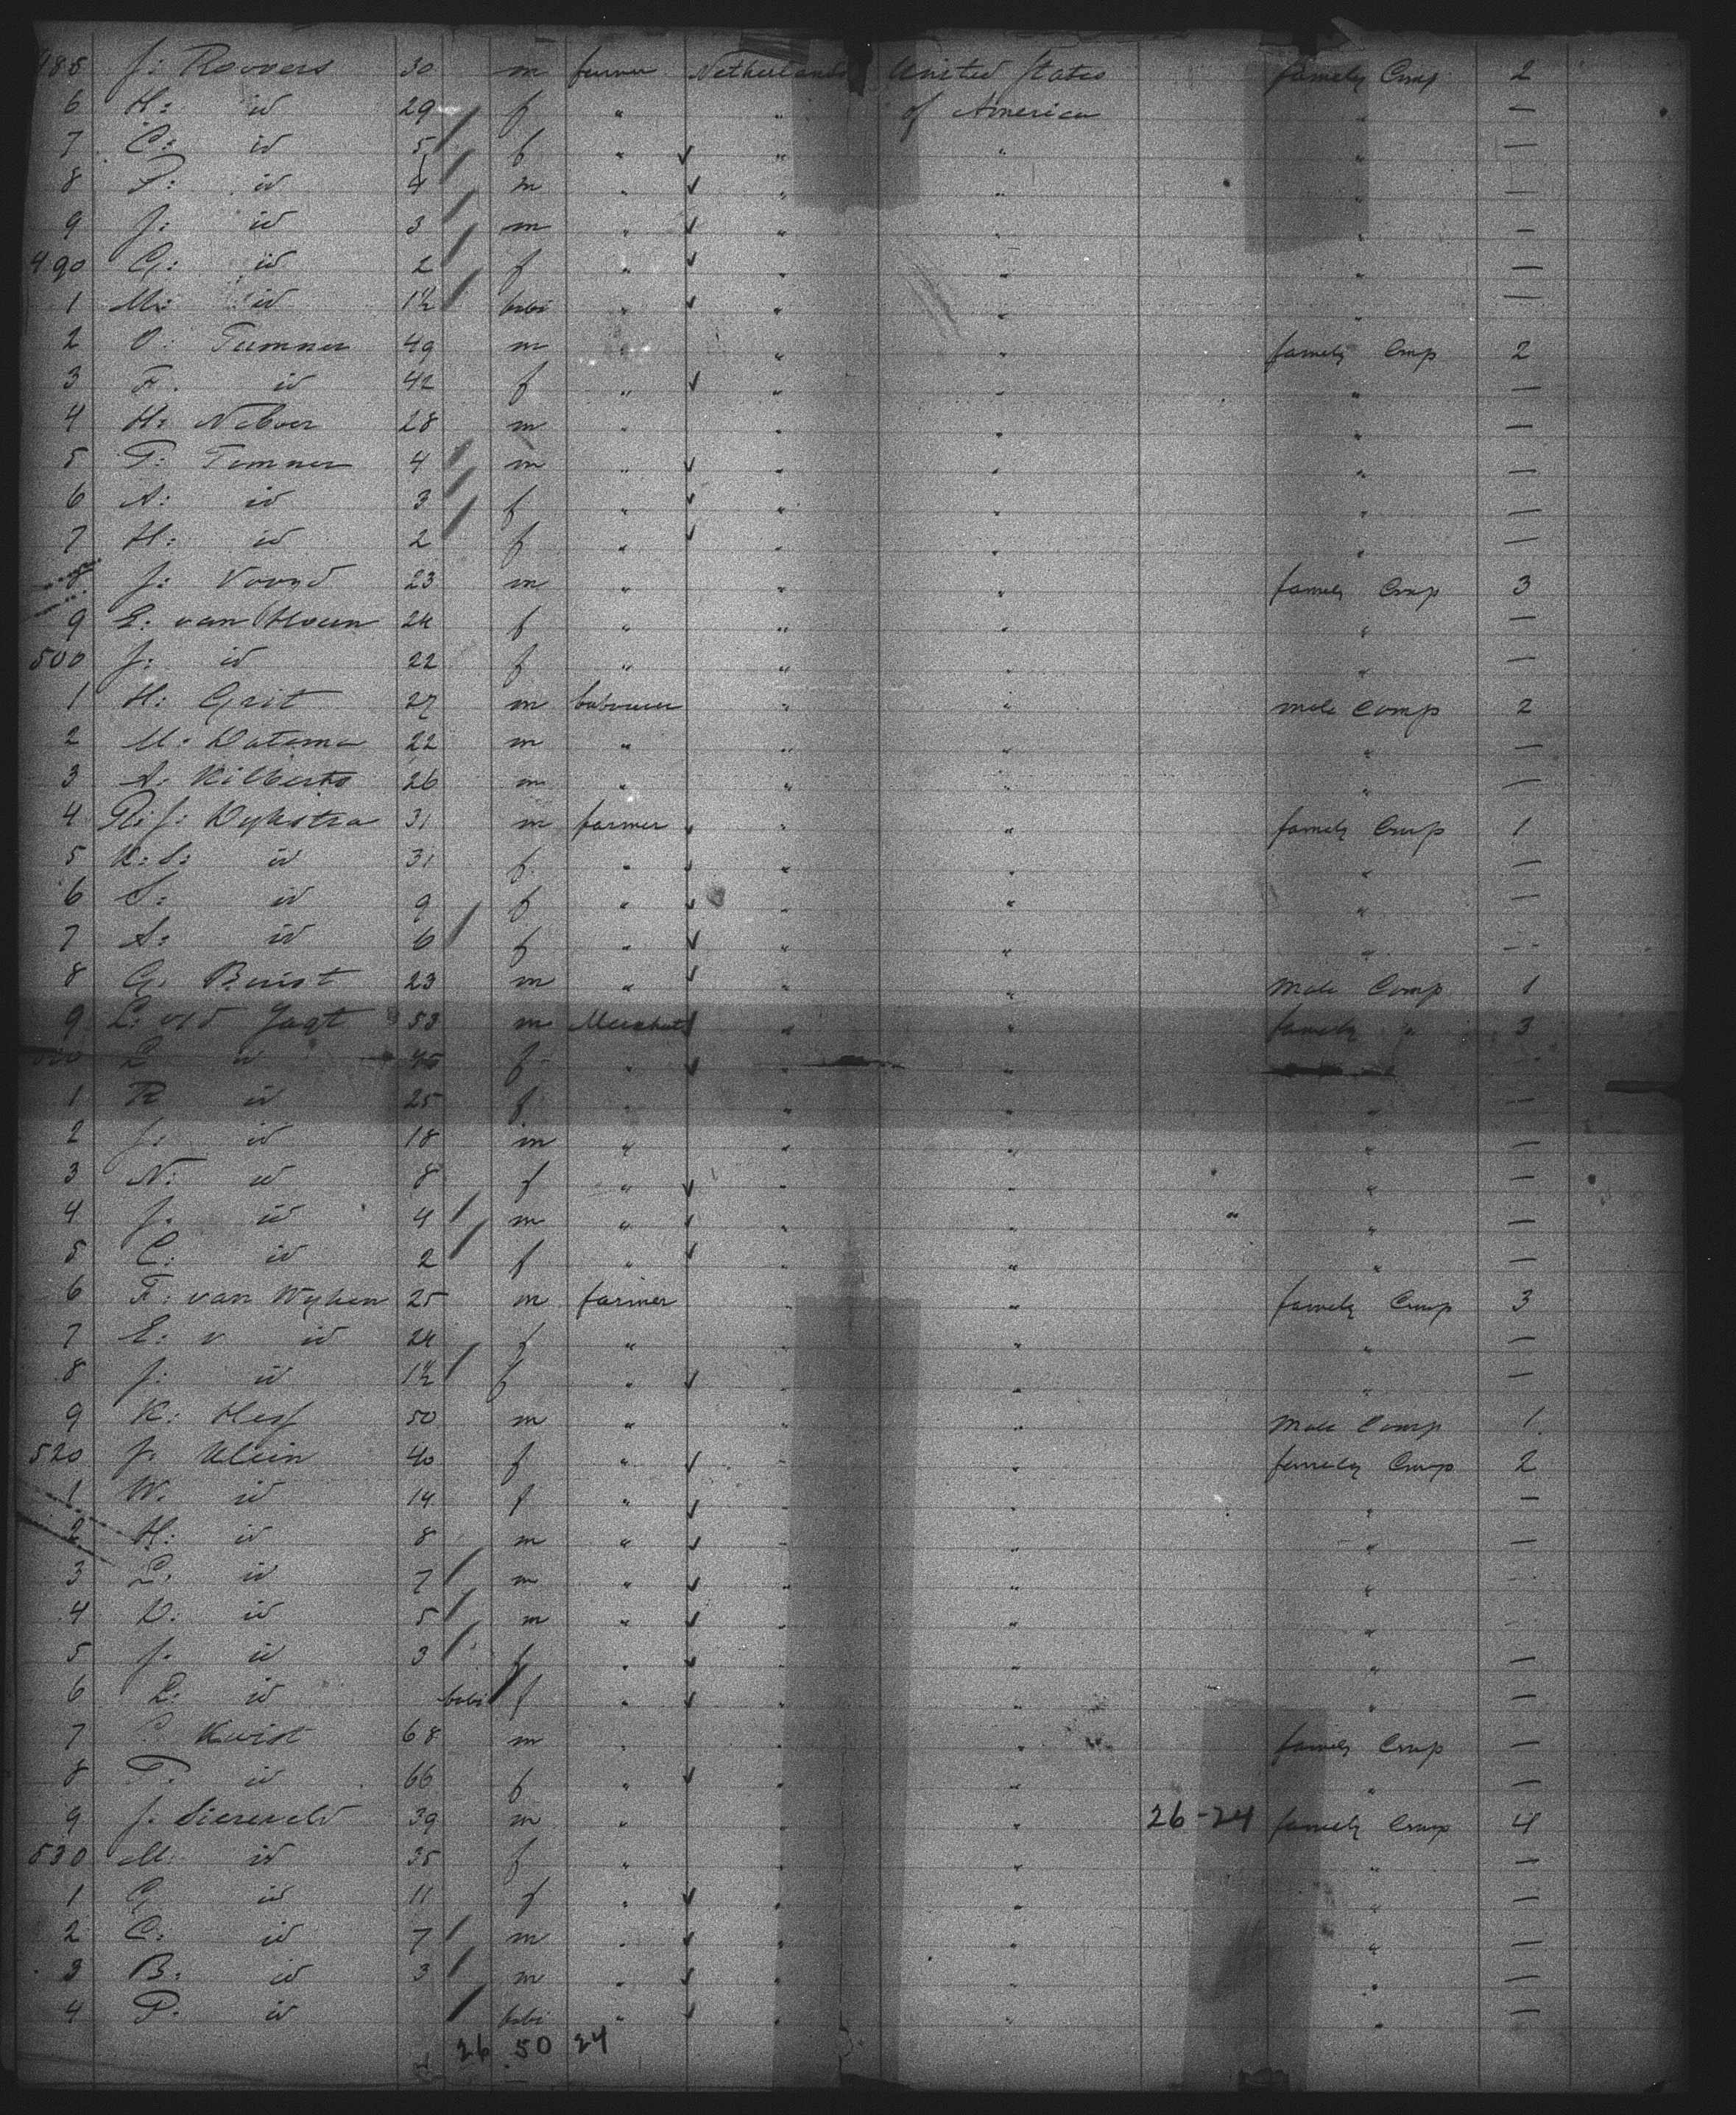 485 J: Roovers 30 m farmer Netherlands United States famely Cmp 2
6 H: id 29 f " " of America " —
7 C: id 5 f " " " " —
8 P: id 4 m " " " " —
9 J: id 3 m " " " " —
490 G: id 2 f " " " " —
1 M: id 1½ babi " " " " —
2 O: 49 m " " " famely Cmp 2
3 F. id 42 f " " " " —
4 H: 28 m " " " " —
5 T: Temmer 4 m " " " " —
6 A: id 3 f " " " " —
7 H: id 2 f " " " " —
8 J: 23 m " " " famely Cmp 3
9 E. van 24 f " " " " —
500 J: id 22 f " " " " —
1 H: Grit 27 m " " male Comp 2
2 M: Datema 22 m " " " " —
3 A: Kilberts 26 m " " " " —
4 J: Dykstra 31 m farmer " " famely Cmp 1
5 K: S: id 31 f " " " " —
6 S: id 9 f " " " " —
7 A: id 6 f " " " " —
8 G. Buist 23 m " " " Male Comp 1
9 L: v/d Jagt 53 m " " famely " 3
510 L id 45 f " " " —
1 R id 25 f " " " " —
2 J: id 18 m " " " " —
3 N: id 8 f " " " " —
4 J. id 4 m " " " " " —
5 C: id 2 f " " " " —
6 F: van Wyken 25 m farmer " " famely Cmp 3
7 E: v id 24 f " " " " —
8 J: id 1½ f " " " " —
9 K: 50 m " " " Male Comp 1
520 J. Klein 40 f " " " famely Cmp 2
1 W. id 14 f " " " " —
2 H: id 8 m " " " " —
3 L. id 7 m " " " " —
4 D. id 5 m " " " " —
5 J. id 3 f " " " " —
6 L: id babi f " " " " —
7 Kwist 68 m " " " famely Cmp —
8 T. id 66 f " " " " —
9 J. Siereveld 39 m " " " 26-24 famely Cmp 4
530 M. id 35 f " " " " —
1 G id 11 f " " " " —
2 C: id 7 m " " " " —
3 B: id 3 m " " " " —
4 P. id babi " " " " —
26 50 24